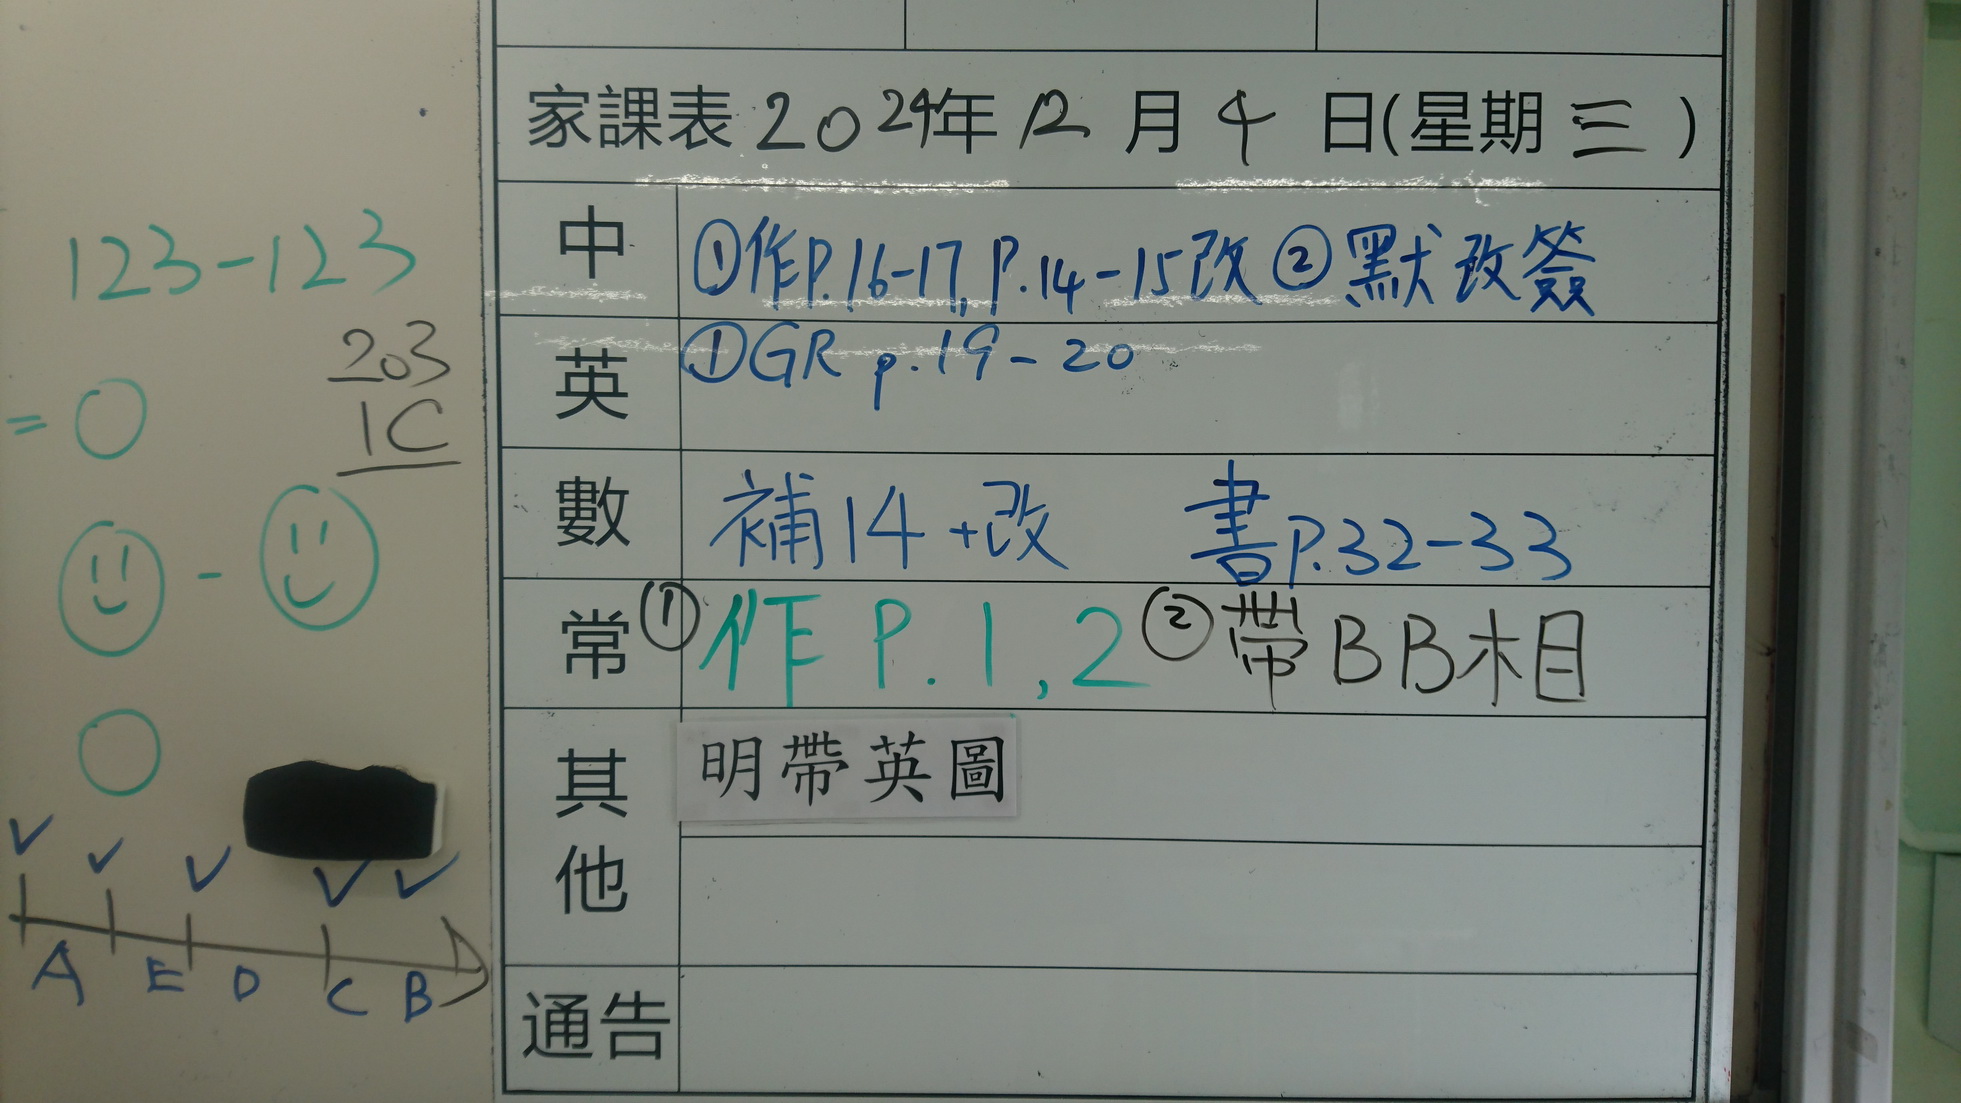 家課表 2024年 12 月 4 日(星期 三 )
中 ①作P.16-17, P.14-15改 ②默改簽
英 ①GR p.19-20
數 補14+改 書P.32-33
常 ①作 P.1,2 ②帶BB相
其他 明帶英圖
通告
123-123
203
1C
= 0
-
0
A E D C B